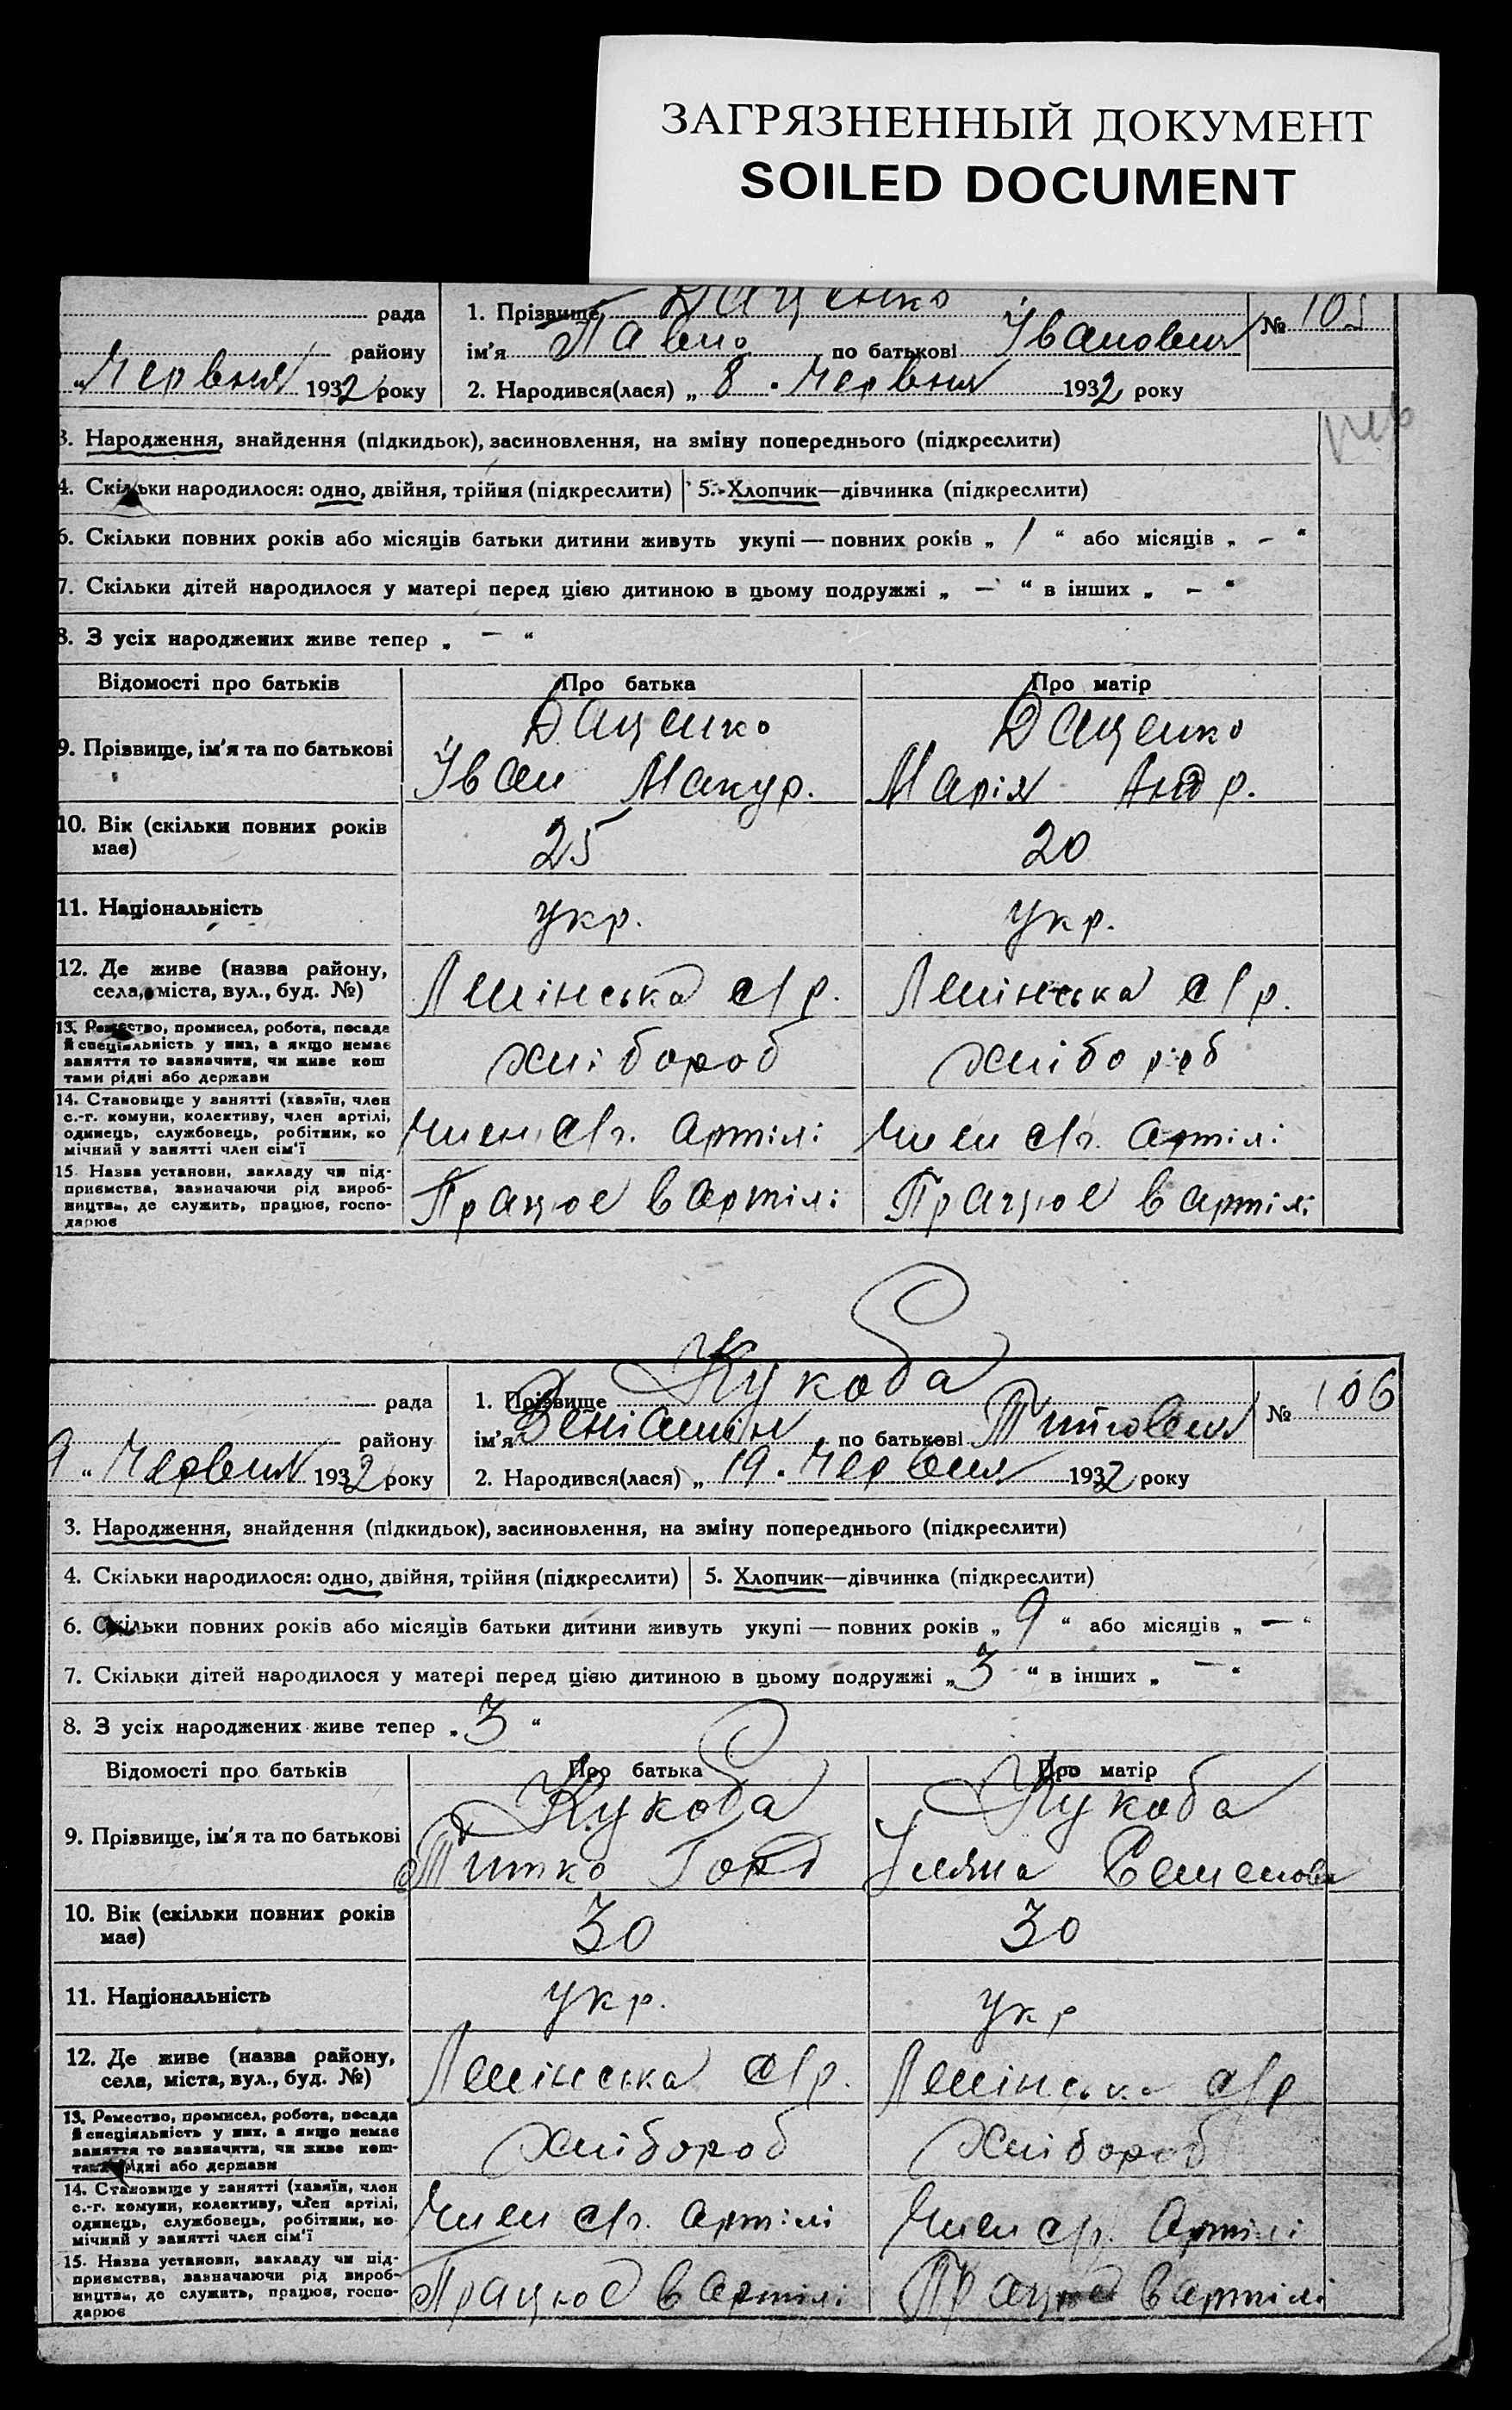 ЗАГРЯЗНЕННЫЙ ДОКУМЕНТ
SOILED DOCUMENT
рада
1. Прізвище Даценко
№ 105
району
ім'я Павло по батькові Іванович
„ Червня 1932 року
2. Народився(лася) „ 8 " Червня 1932 року
3. Народження, знайдення (підкидьок), засиновлення, на зміну попереднього (підкреслити)
4. Скільки народилося: одно, двійня, трійня (підкреслити) 5. Хлопчик—дівчинка (підкреслити)
6. Скільки повних років або місяців батьки дитини живуть укупі — повних років „ 1 “ або місяців „ – “
7. Скільки дітей народилося у матері перед цією дитиною в цьому подружжі „ — “ в інших „ – “
8. З усіх народжених живе тепер „ — “
Відомості про батьків Про батька Про матір
9. Прізвище, ім'я та по батькові
Даценко Даценко
Іван Макур. Марія Андр.
10. Вік (скільки повних років має) 25 20
11. Національність укр. укр.
12. Де живе (назва району,
села, міста, вул., буд. №) Ленінська с/р. Ленінська с/р.
13. Ремество, промисел, робота, посада
й спеціяльність у них, а якщо немає
заняття то зазначити, чи живе кош
тами рідні або держави
хлібороб хлібороб
14. Становище у занятті (хазяїн, член
с.-г. комуни, колективу, член артілі,
одинець, службовець, робітник, ко
мічний у занятті член сім'ї
Член с/г. артілі Член с/г. артілі
15 Назва установи, закладу чи під-
приємства, зазначаючи рід вироб-
ництва, де служить, працює, госпо-
дарює
Працює в артілі Працює в артілі
рада
1. Прізвище Кукоба
№ 106
району
ім'я Веніамін по батькові Титович
9 “ Червня 1932 року
2. Народився(лася) „ 19 " Червня 1932 року
3. Народження, знайдення (підкидьок), засиновлення, на зміну попереднього (підкреслити)
4. Скільки народилося: одно, двійня, трійня (підкреслити) 5. Хлопчик—дівчинка (підкреслити)
6. Скільки повних років або місяців батьки дитини живуть укупі — повних років „ 9 “ або місяців „ — “
7. Скільки дітей народилося у матері перед цією дитиною в цьому подружжі „ 3 “ в інших „ — “
8. З усіх народжених живе тепер „ 3 “
Відомості про батьків Про батька Про матір
9. Прізвище, ім'я та по батькові
Кукоба Кукоба
Титко Горд Уляна Семенова
10. Вік (скільки повних років
має) 30 30
11. Національність укр. укр
12. Де живе (назва району,
села, міста, вул., буд. №) Ленінська с/р. Ленінська с/р
13. Ремество, промисел, робота, посада
й спеціяльність у них, а якщо немає
заняття то зазначити, чи живе кош-
тами рідні або держави
хлібороб хлібороб
14. Становище у занятті (хазяїн, член
с.-г. комуни, колективу, член артілі,
одинець, службовець, робітник, ко
мічний у занятті член сім'ї
Член с/г. артілі Член с/г. Артілі
15. Назва установи, закладу чи під-
приємства, зазначаючи рід вироб-
ництва, де служить, працює, госпо-
дарює
Працює в артілі Працює в артілі